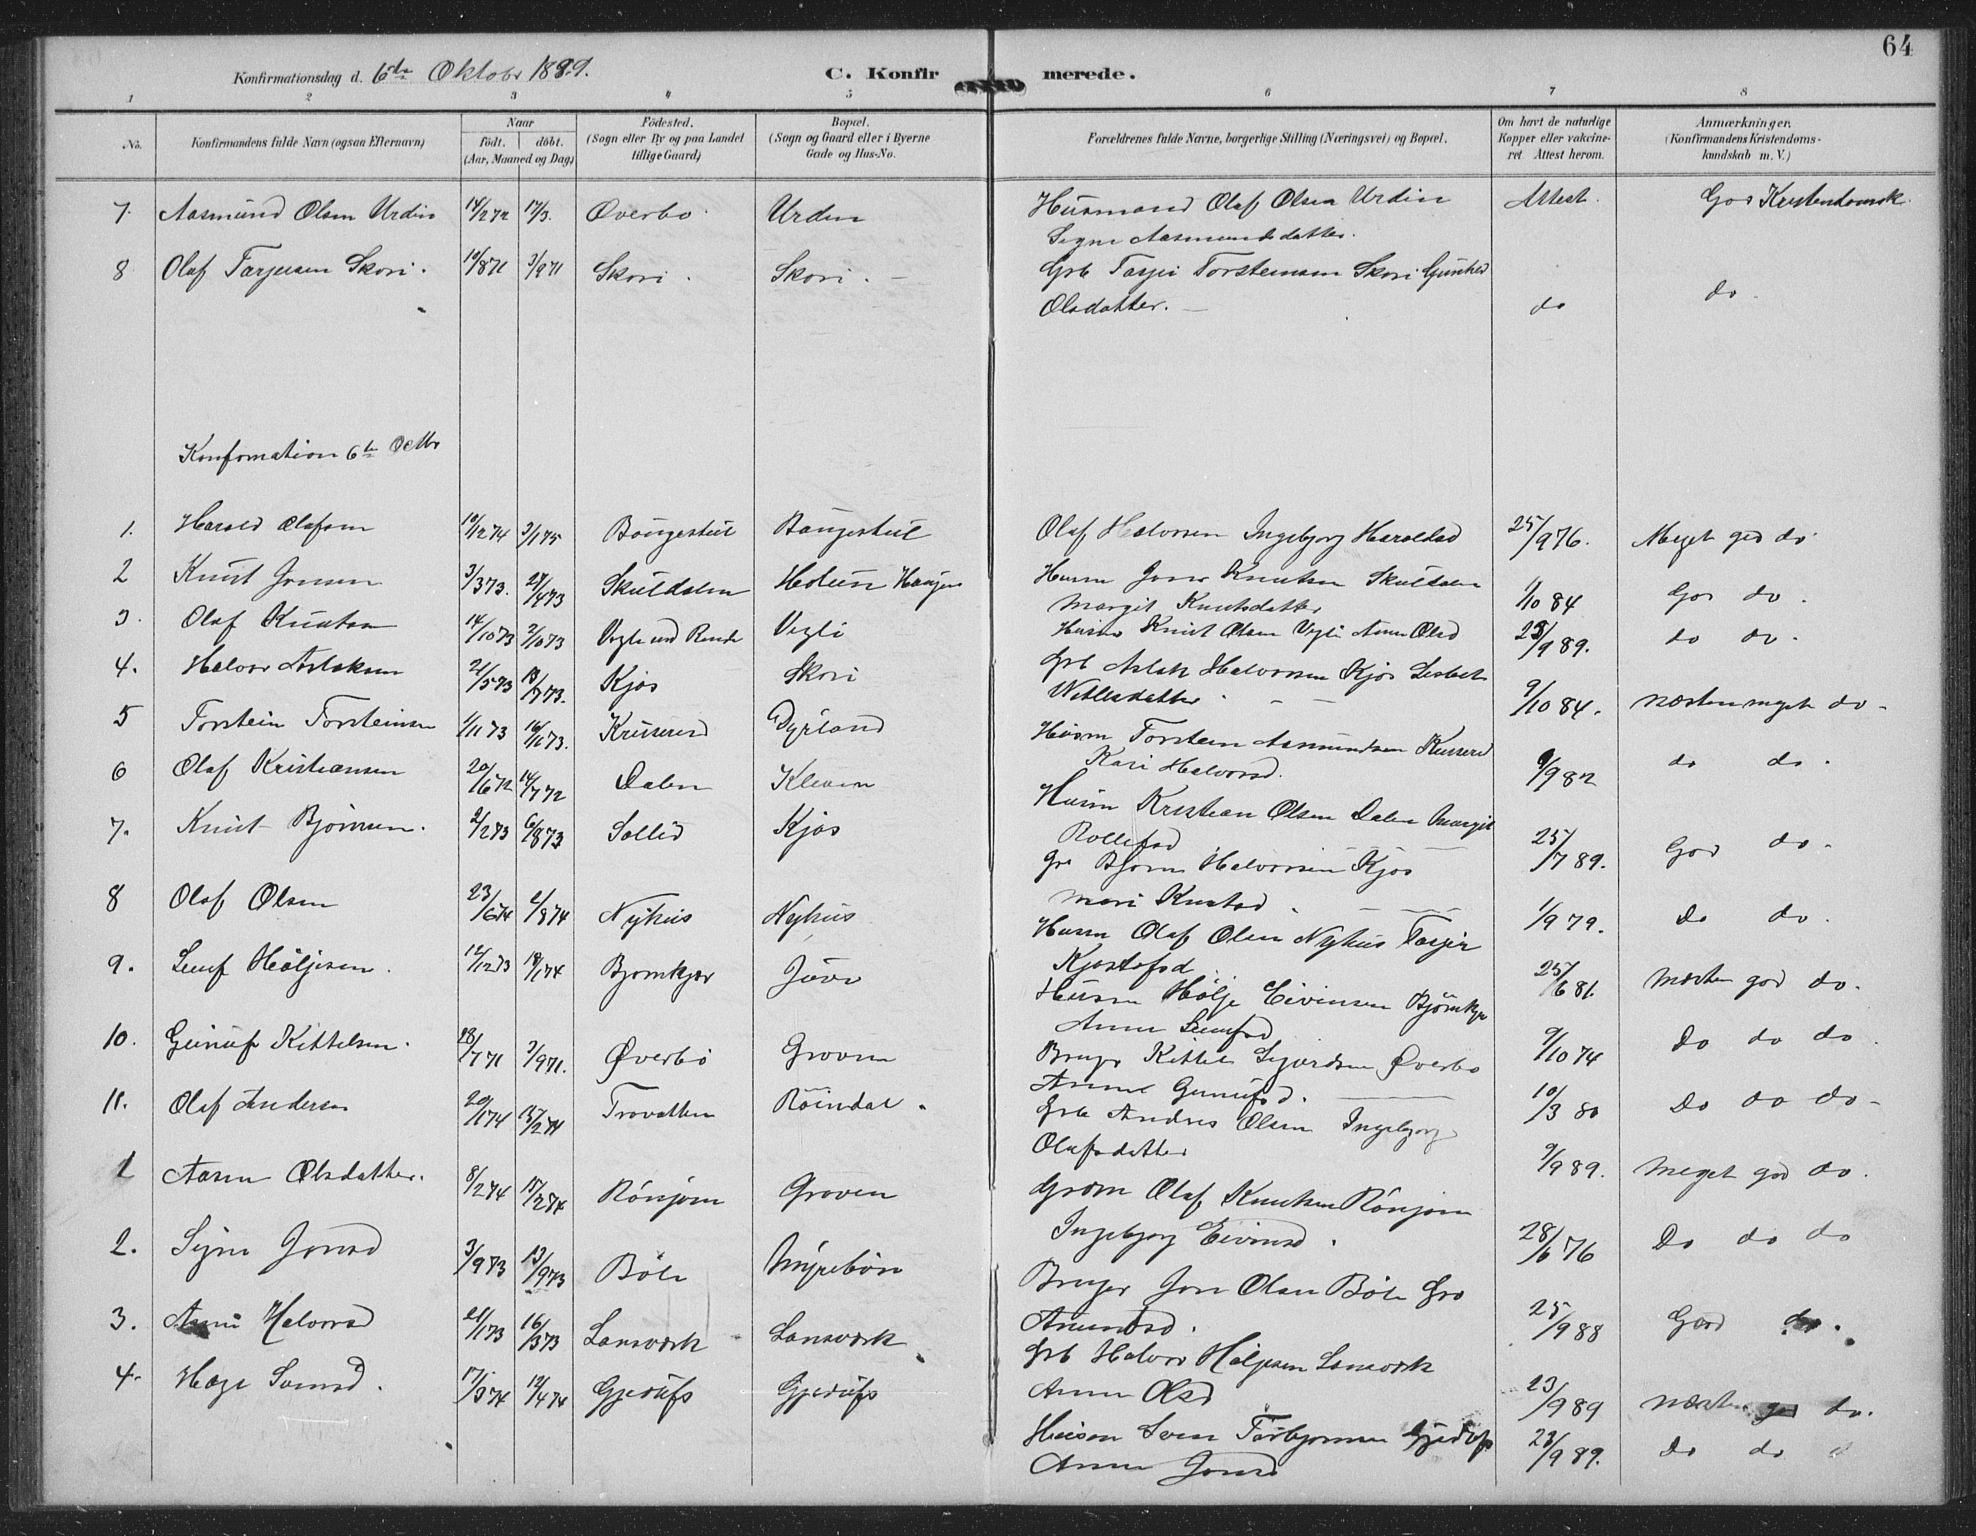 64
Konfirmationsdag d. 6te Oktobr 1889.
C. Konfirmerede.
1 2 3 4 5 6 7 8
No.
Konfirmandens fulde Navn (ogsaa Efternavn)
Naar
født. døbt.
(Aar, Maaned og Dag)
Fødested.
(Sogn eller By og paa Landet
tillige Gaard)
Bopæl.
(Sogn og Gaard eller i Byerne
Gade og Hus-No.
Forældrenes fulde Navne, borgerlige Stilling (Næringsvei) og Bopæl.
Om havt de naturlige
Kopper eller vakcine-
ret. Attest herom.
Anmærkninger.
(Konfirmandens Kristendoms-
kundskab m. V.)
7. Aasmund Olsen Urdin 14/2 72 17/3. Øverbø Urden Husmand Olaf Olsen Urdin Attest. God Kristendomsk.
Signe Aasmundsdatter.
8 Olaf Tarjeisen Skori. 10/8 71 3/9 71 Skori. Skori. Grb Tarjei Torsteinsen Skori Gunhild
Olsdatter. do do.
Konfirmation 6te Octbr
1. Harald Olafsen 10/12 74 3/1 75 Baugestul Baugestul Olaf Halvorsen Ingebjorg Haraldsd 25/9 76. Meget god do
2 Knut Jonsen 3/3 73. 27/4 73 Skuldalen Husm Jons Knutsen Skuldalen
Margit Knutsdatter 1/10 84 God do.
3. Olaf Knutsen 14/10 73 Vegli Husm Knut Olsen Vegli Anne Olsd 23/9 89. do do.
4. Halvor Aslaksen 21/5 73 13/7 73. Kjos Skori Grb Aslak Halvorsen Kjos Lisbet
9/10 84. næsten meget do.
5 Torstein Torsteinsen 1/11 73 16/11 73. Dyrland Husm Torstein Aasmundsen
Kari Halvorsd. 9/9 82 do do.
6 Olaf Kristiansen 20/6 72 14/7 72 Dalen Kleven Husm Kristian Olsen Dalen Margit
Rollefsd
7. Knut Bjørnsen. 2/2 73 6/8 73 Sollid Kjos Gr Bjørn Halvorsen Kjos 25/7 89. God do.
Mari Knutsd.
8 Olaf Olsen 23/6 74 2/8 74 Nyhus Nyhus Husm Olaf Olsen Nyhus Tarjer 1/9 79. Do do.
Kjøstofsd.
9. Leuf Høljesen. 12/12 73 18/1 74 Bjørnkjær Jore Husm Hølje Eivinsen Bjørnkjær 25/6 81. næsten god do.
Anne Leufsd
10. Gunuf Kittelsen. 28/7 71 3/9 71. Øverbø Groven Bruger Kittel Sjurdsen Øverbø 9/10 74 Do do do
Gunufsd.
11. Olaf Andersen 20/1 74 15/2 74 Trovatten Røindal. Grb Andres Olsen Ingebjorg 10/3 80 Do do do.
Olafsdatter
1 Aasne Olsdatter. 8/2 74 15/2 74 Rønjom Groven Grdm Olaf Knutsen Rønjom 9/9 89. Meget god do.
Ingebjorg Eivinsd.
2. Signe Jonsd 3/9 73 13/9 73 Bøle Myrebøen Bruger Jon Olsen Bøle Gro 28/6 76 Do do do
Amundsd.
3. Anne Halvorsd 21/1 73 16/3 73 Lansværk Lansværk Grb Halvor Høljesen Lansværk 25/9 88 God do.
Anne Olsd
4. Hæge Svensd. 17/3 74 12/4 74 Gjedufs Gjedufs Husm Sven Torbjørnsen Gjedufs 23/9 89 Næsten god do.
Anne Jonsd 23/9 89. Do do